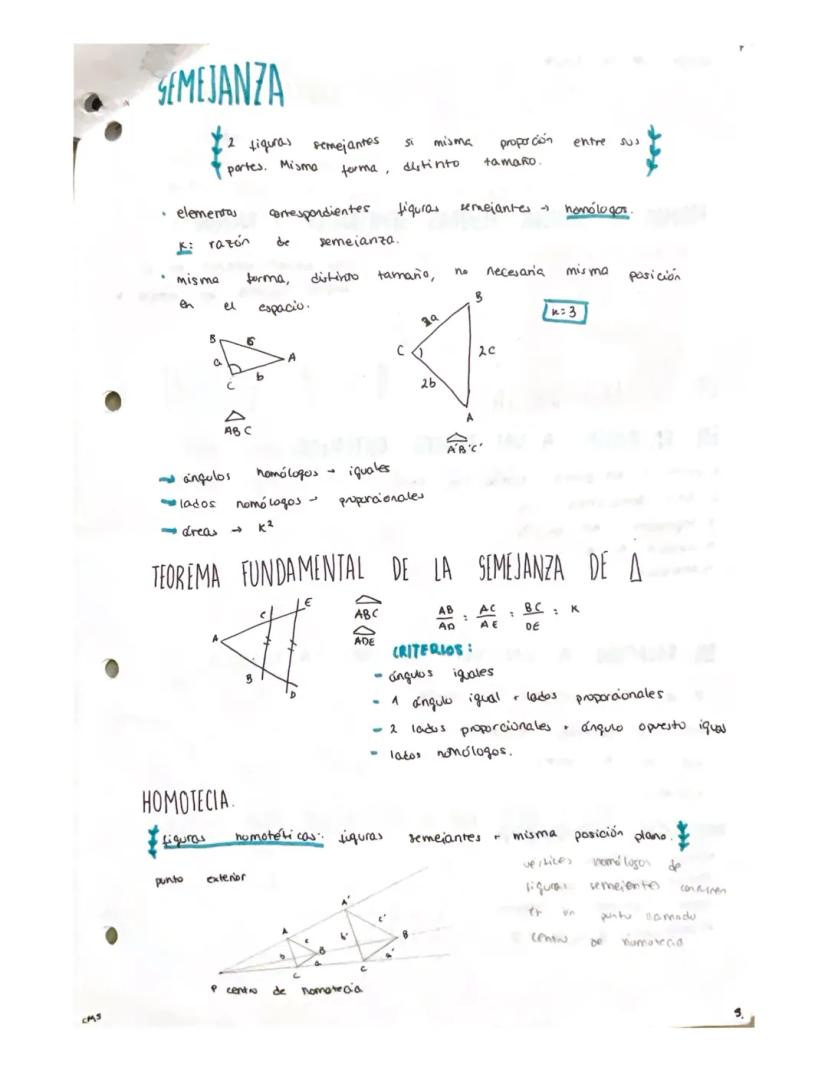 SEMEJANZA
2 figuras semejantes si misma proporción entre sus
partes. Misma forma, distinto tamaño.
• elementos correspondientes figuras semejantes → homólogos.
K: razón de semejanza.
• misma forma, distinto tamaño, no necesaria misma posición
en el espacio.
K=3
B
a
b
A
C
ABC
B
C
2c
2b
A
A'B'C'
→ ángulos homólogos → iguales
→ lados homólogos → proporcionales
→ áreas → K²
TEOREMA FUNDAMENTAL DE LA SEMEJANZA DE Δ
A
C
E
B
D
ABC
ADE
AB/AD = AC/AE = BC/DE = K
CRITERIOS:
- ángulos iguales
- 1 ángulo igual + lados proporcionales
- 2 lados proporcionales + ángulo opuesto igual
- lados homólogos.
HOMOTECIA.
figuras homotéticas: figuras semejantes + misma posición plano.
vértices homólogos de
figuras semejantes concurren
en un punto llamado
centro de homotecia
punto exterior
A
c
b
B
a
C
A'
c'
b'
B
a'
C
P centro de homotecia
CMS
9.